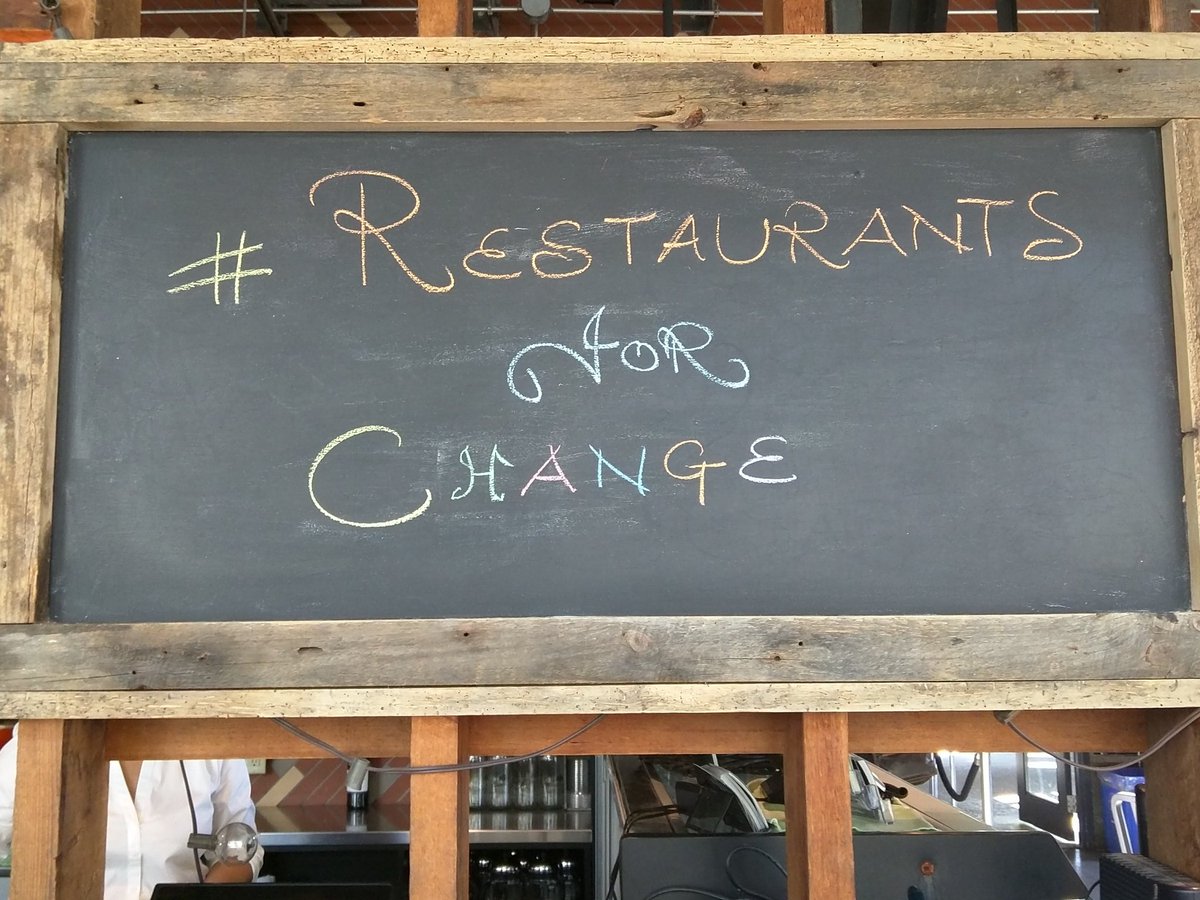 # RESTAURANTS
FOR
CHANGE